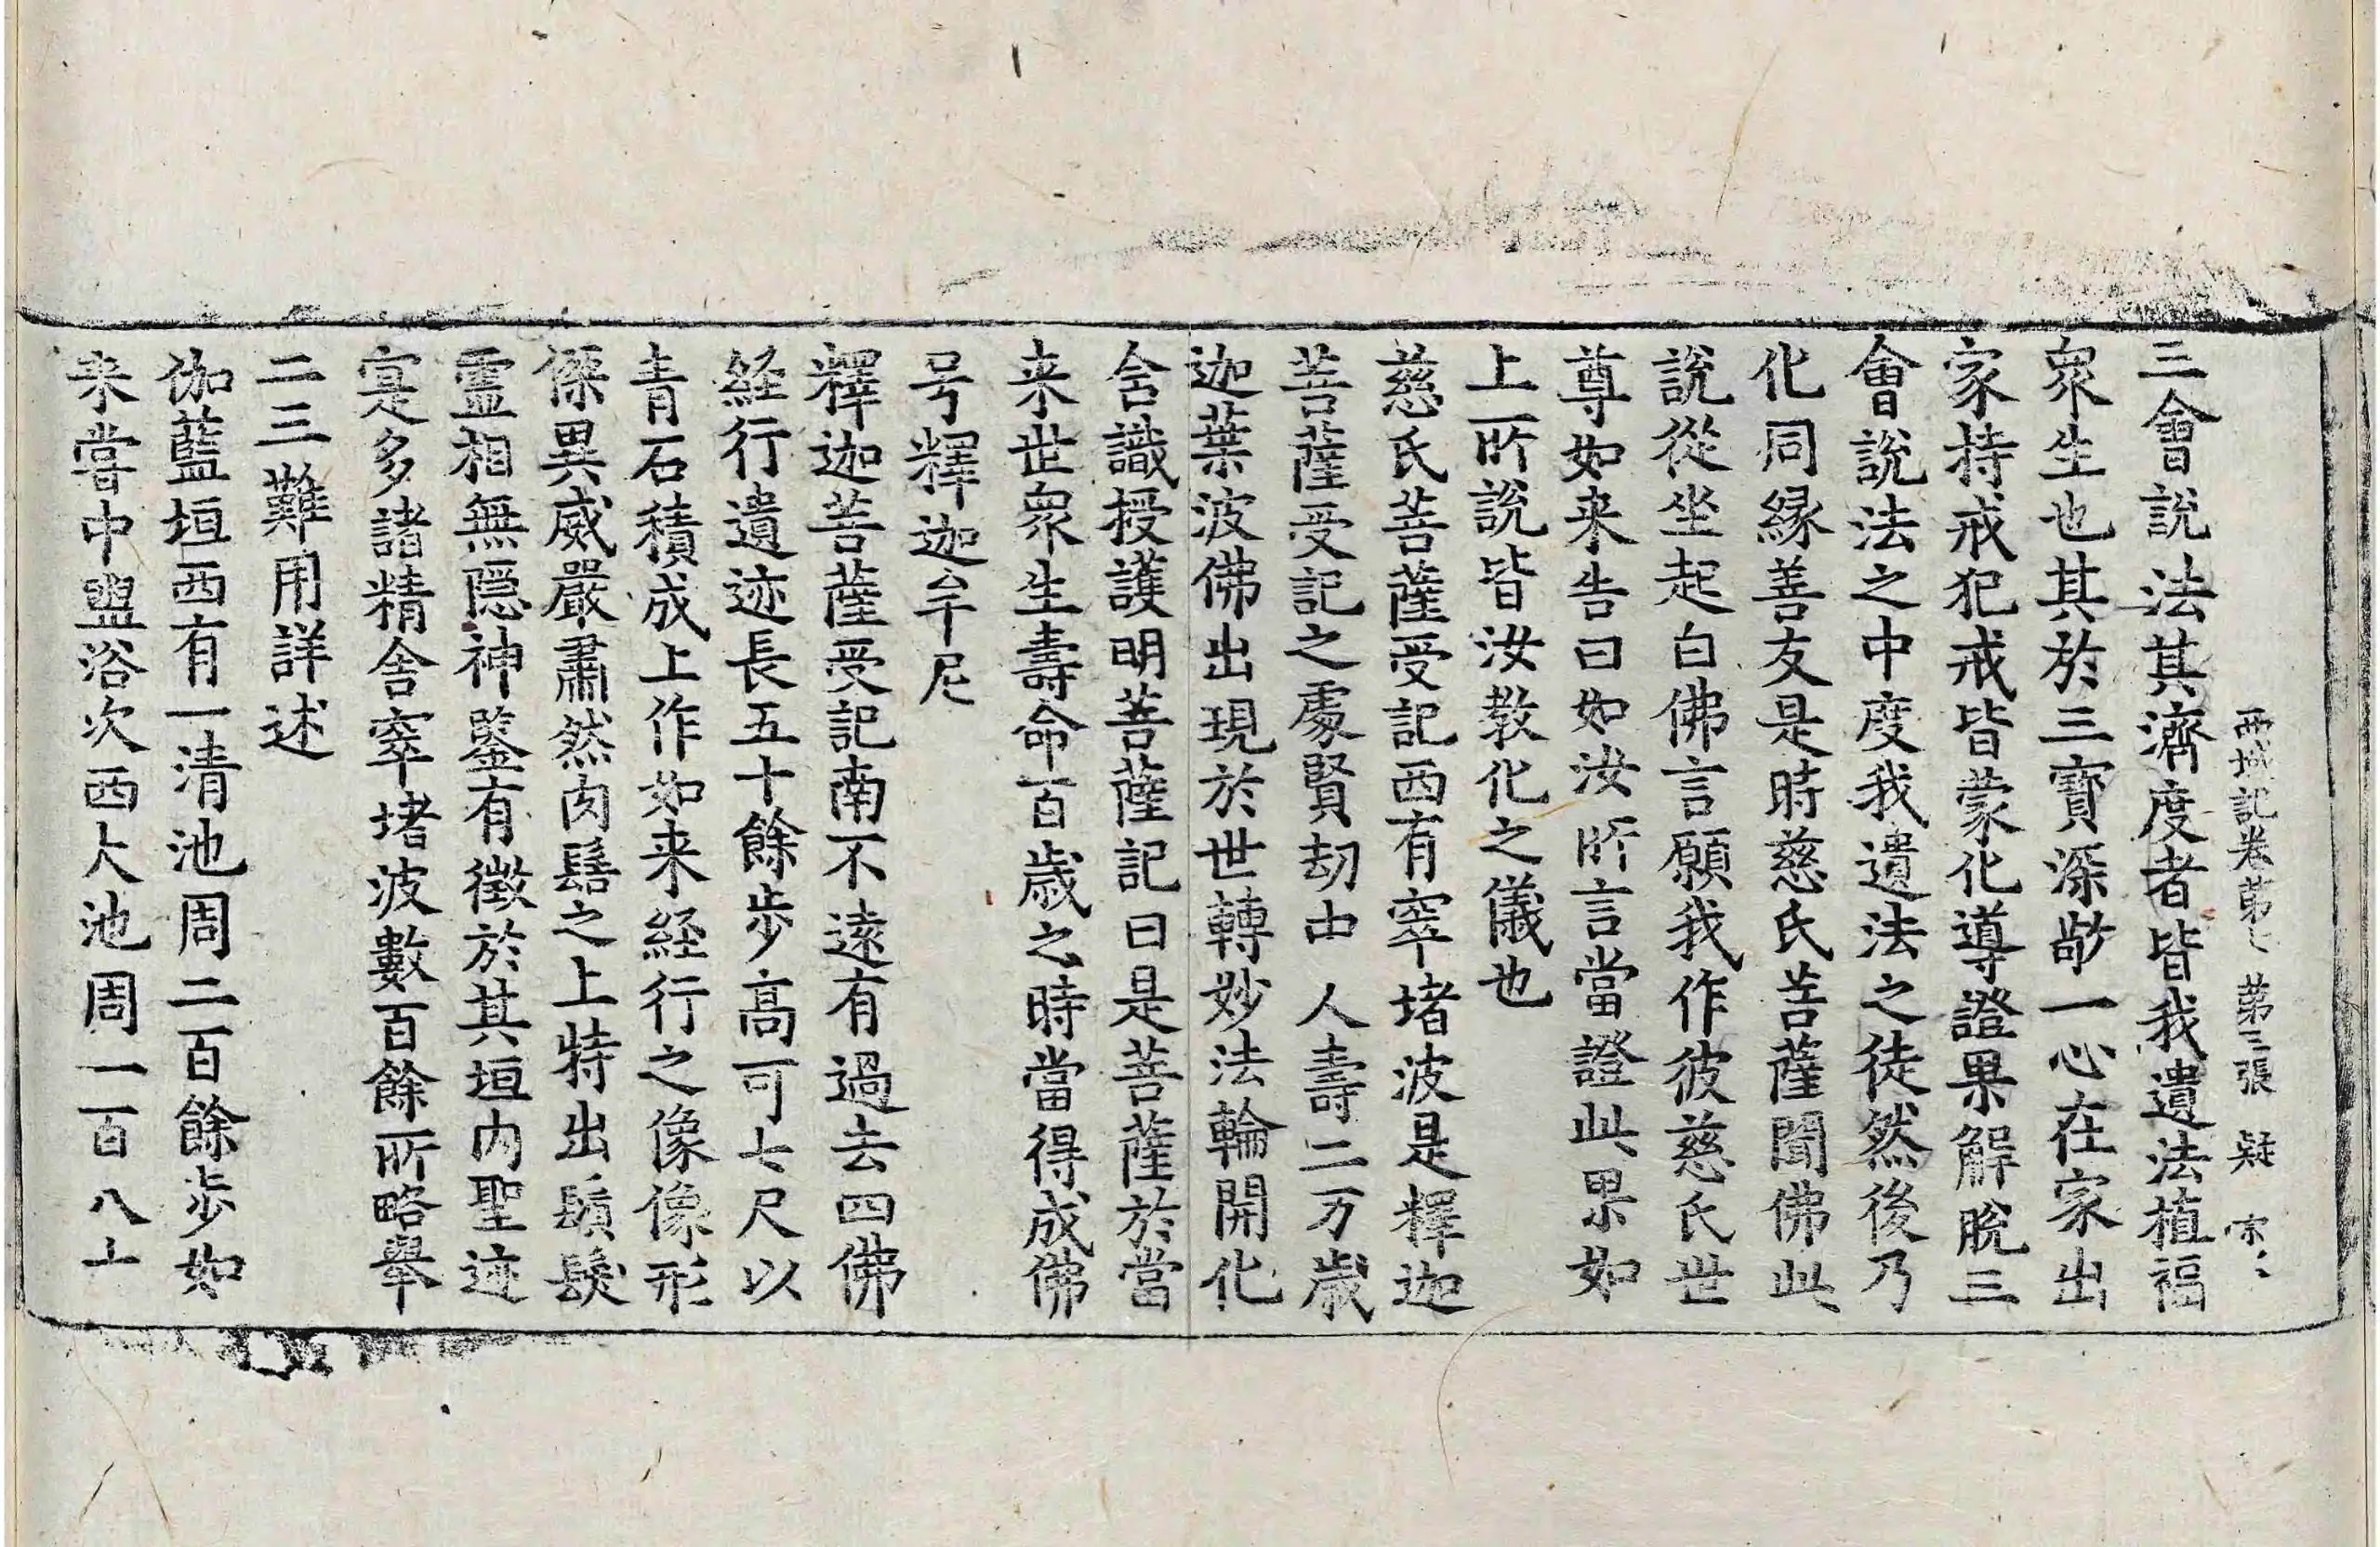 西域記卷第七 第三張 疑
三會說法其濟度者皆我遺法植福
衆生也其於三寶深敬一心在家出
家持戒犯戒皆蒙化導證果解脫三
會說法之中度我遺法之徒然後乃
化同緣善友是時慈氏菩薩聞佛此
說從坐起白佛言願我作彼慈氏世
尊如来告曰如汝所言當證此果如
上所說皆汝教化之儀也
慈氏菩薩受記西有窣堵波是釋迦
菩薩受記之處賢劫中人壽二万歲
迦葉波佛出現於世轉妙法輪開化
含識授護明菩薩記曰是菩薩於當
来世衆生壽命百歲之時當得成佛
号釋迦牟尼
釋迦菩薩受記南不遠有過去四佛
経行遺迹長五十餘步高可七尺以
青石積成上作如来経行之像像形
傑異威嚴肅然肉髻之上特出鬚髮
靈相無隱神鑒有徵於其垣內聖迹
寔多諸精舍窣堵波數百餘所略舉
二三難用詳述
伽藍垣西有一清池周二百餘步如
来嘗中盥浴次西大池周一百八十